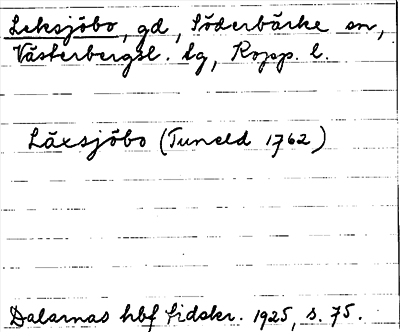 Leksjöbo, gd, Söderbärke sn,
Västerbergsl. tg, Kopp. l.
Läxsjöbo (Tuneld 1762)
Dalarnas hbf tidskr. 1925, s. 75.